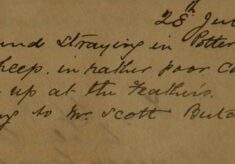 28th Jun
und straying in Potter
heep. in rather poor Co
up at the Feathers.
g to Mr. Scott Butc